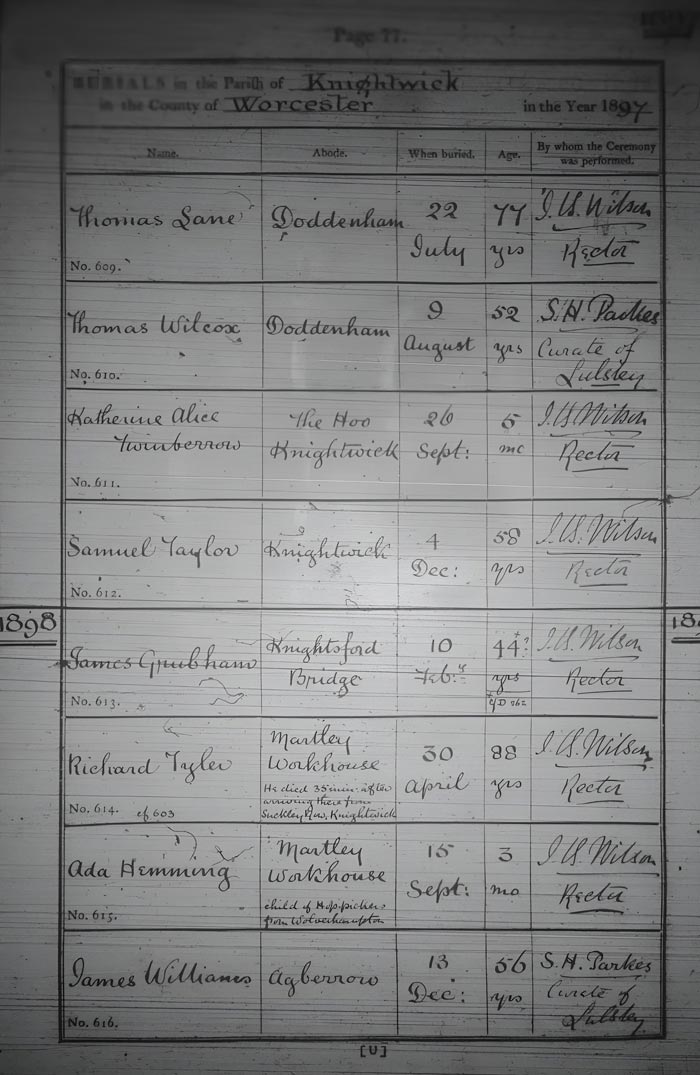 Page 77.
BURIALS in the Parish of Knightwick
in the County of Worcester in the Year 1897
Name. Abode. When buried. Age. By whom the Ceremony was performed.
Thomas Lane Doddenham 22 77 Wilson
July yrs Rector
No. 609.
Thomas Wilcox Doddenham 9 52 S. H. Parkes
August yrs Curate of
No. 610. Lulsley
Katherine Alice The Hoo 26 5 Wilson
Twinberrow Knightwick Sept: mo Rector
No. 611.
Samuel Taylor Knightwick 4 58 Wilson
Dec: yrs Rector
No. 612.
1898
James Grubham Knightsford 10 44 Wilson
Bridge Feb: yrs Rector
No. 613.
Richard Tyler Martley 30 88 Wilson
Workhouse April yrs Rector
He died 35 min after
arriving there from
No. 614. cf 603 Suckley Row, Knightwick
Ada Hemming Martley 15 3 Wilson
Workhouse Sept: mo Rector
child of Hop-pickers
No. 615. from Wolverhampton
James Williams Agberrow 13 56 S. H. Parkes
Dec: yrs Curate of
No. 616. Lulsley
[U]